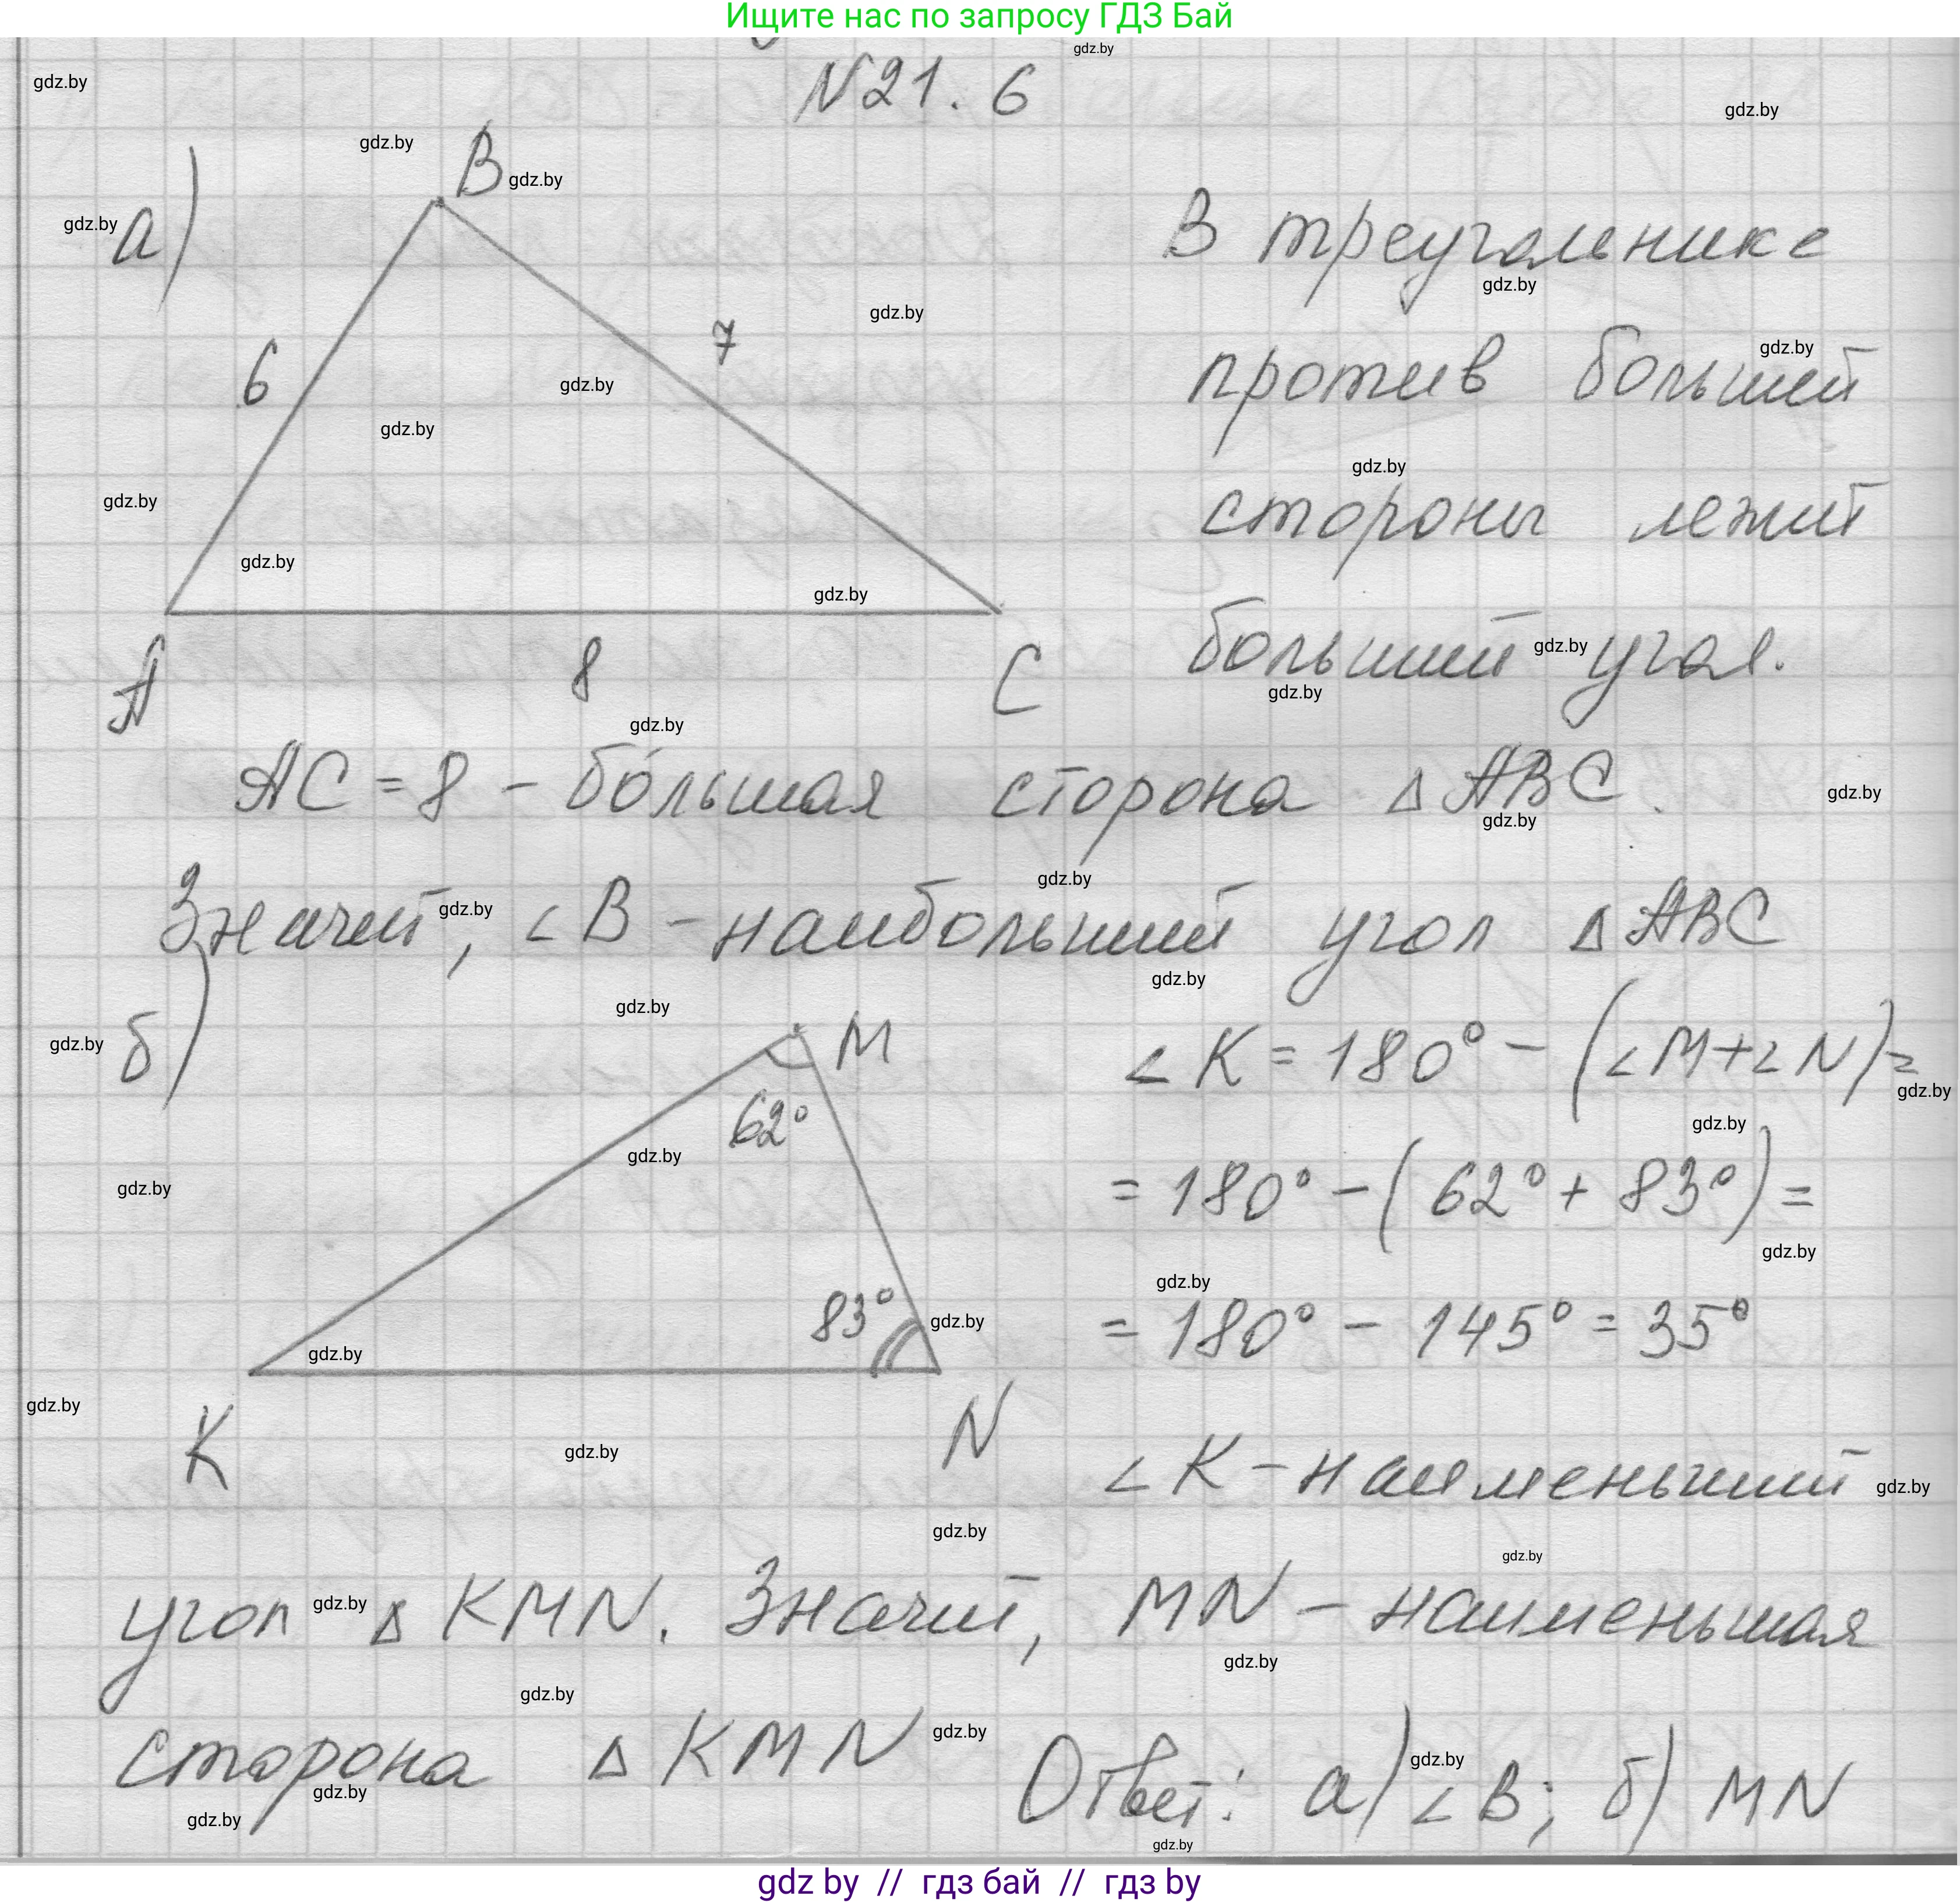 Ищите нас по запросу ГДЗ Бай
gdz.by
N21. 6
gdz.by
gdz.by
gdz.by
B gdz.by
gdz.by а)
В треугольнике
gdz.by
gdz.by
7
против большей
gdz.by
6
gdz.by
gdz.by
gdz.by
стороны лежит
gdz.by
gdz.by
gdz.by
больший gdz.by угол.
gdz.by
A 8 C
gdz.by
AC = 8 - бо́льшая сторона Δ ABC.
gdz.by
gdz.by
gdz.by
Значит, gdz.by ∠B - наибольший угол Δ ABC
gdz.by
gdz.by
gdz.by б)
M
∠K = 180° - (∠M+∠N)=
gdz.by
62°
gdz.by
gdz.by
gdz.by
= 180° - (62° + 83°) =
gdz.by
gdz.by
83° gdz.by
= 180° - 145° = 35°
gdz.by
gdz.by
K N
gdz.by
∠K - наименьший gdz.by
gdz.by
gdz.by
угол gdz.by Δ KMN. Значит, MN - наименьшая
gdz.by
gdz.by
сторона Δ KMN gdz.by
gdz.by
gdz.by
Ответ: а) gdz.by ∠B; б) MN
gdz.by
gdz by // гдз бай // гдз by